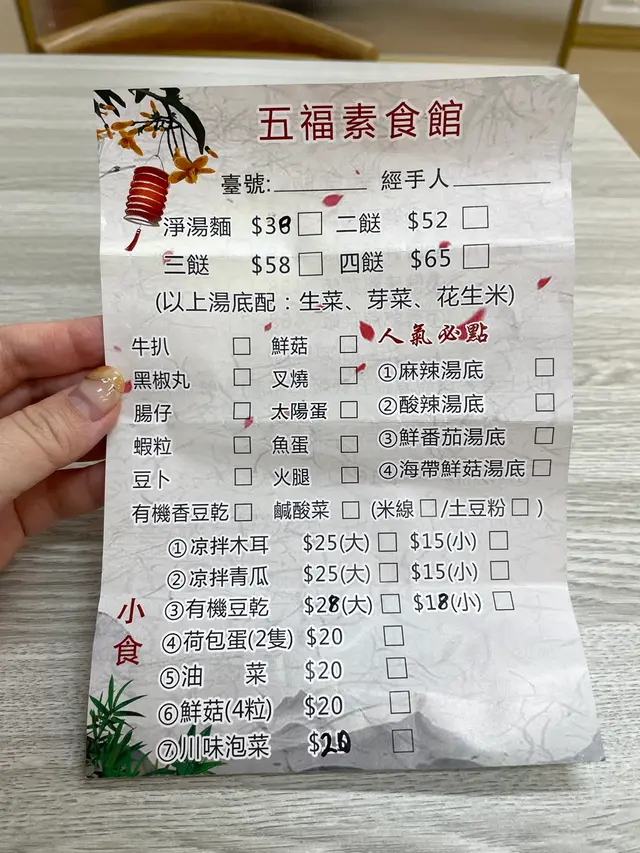 五福素食館
臺號:________ 經手人________
淨湯麵 $38 □ 二餸 $52 □
三餸 $58 □ 四餸 $65 □
(以上湯底配：生菜、芽菜、花生米)
牛扒 □ 鮮菇 □ 人氣必點
黑椒丸 □ 叉燒 □ ①麻辣湯底 □
腸仔 □ 太陽蛋 □ ②酸辣湯底 □
蝦粒 □ 魚蛋 □ ③鮮番茄湯底 □
豆卜 □ 火腿 □ ④海帶鮮菇湯底 □
有機香豆乾 □ 鹹酸菜 □ (米線 □ /土豆粉 □ )
小食
①凉拌木耳 $25(大) □ $15(小) □
②凉拌青瓜 $25(大) □ $15(小) □
③有機豆乾 $28(大) □ $18(小) □
④荷包蛋(2隻) $20 □
⑤油 菜 $20 □
⑥鮮菇(4粒) $20 □
⑦川味泡菜 $20 □